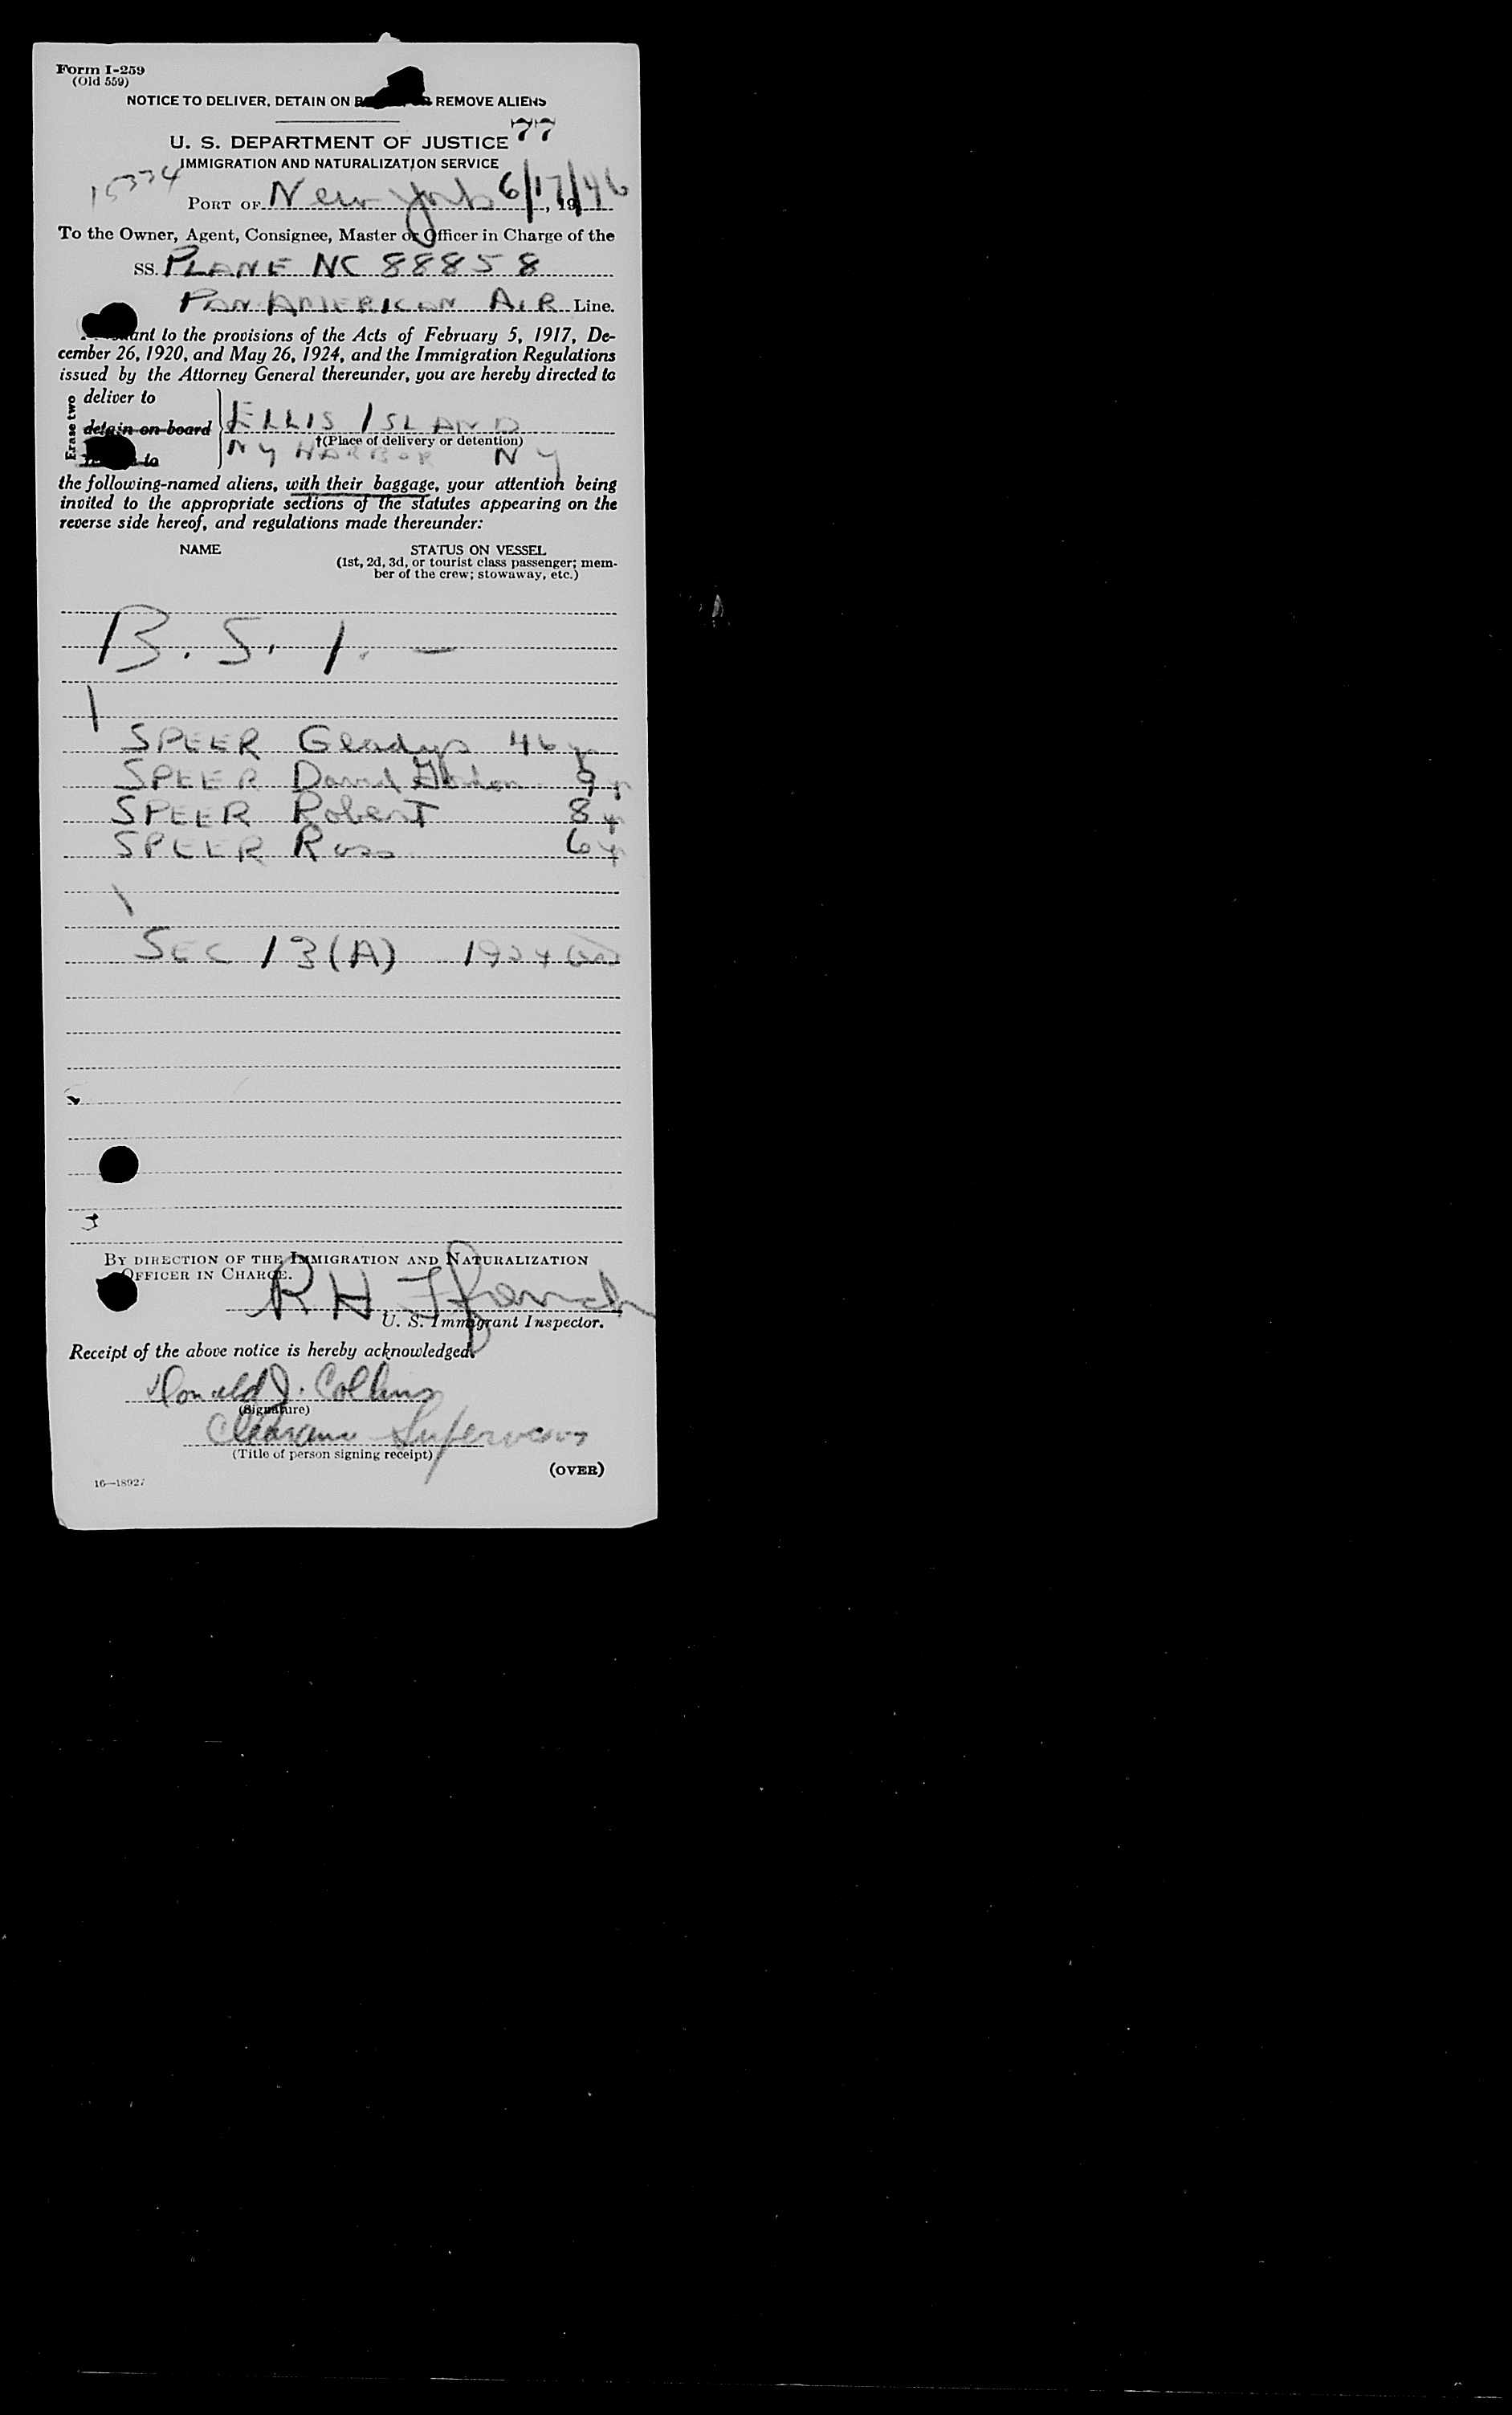 Form I-259
(Old 559)
NOTICE TO DELIVER, DETAIN ON REMOVE ALIENS
77
U. S. DEPARTMENT OF JUSTICE
IMMIGRATION AND NATURALIZATION SERVICE
15374
PORT OF New York 6/17/46, 19
To the Owner, Agent, Consignee, Master or Officer in Charge of the
SS. PLANE NC 88858
PAN AMERICAN AIR Line.
to the provisions of the Acts of February 5, 1917, De-
cember 26, 1920, and May 26, 1924, and the Immigration Regulations
issued by the Attorney General thereunder, you are hereby directed to
Erase two
deliver to
detain on board
to
ELLIS ISLAND
†(Place of delivery or detention)
NY HARBOR NY
the following-named aliens, with their baggage, your attention being
invited to the appropriate sections of the statutes appearing on the
reverse side hereof, and regulations made thereunder:
NAME
STATUS ON VESSEL
(1st, 2d, 3d, or tourist class passenger; mem-
ber of the crew; stowaway, etc.)
B. S. I. —
SPEER Gladys 46 yr
SPEER David 9 yr
SPEER Robert 8 yr
SPEER Ross 6 yr
SEC 13(A) 1924
BY DIRECTION OF THE IMMIGRATION AND NATURALIZATION
OFFICER IN CHARGE.
R H Ffrench
U. S. Immigrant Inspector.
Receipt of the above notice is hereby acknowledged.
Donald J. Collins
(Signature)
Clearance Supervisor
(Title of person signing receipt)
(OVER)
16—18927